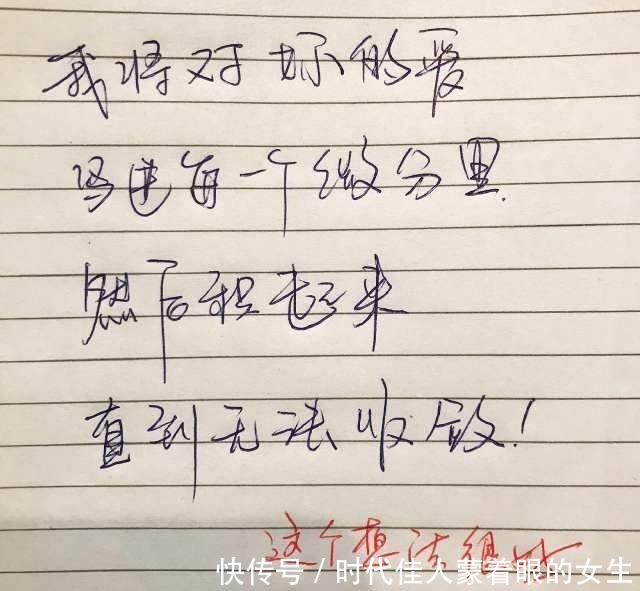 我将对你的爱
写进每一个微分里
然后积起来
直到无法收敛！
这个想法很好
快传号/时代佳人蒙着眼的女生